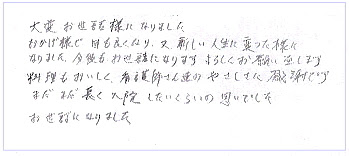 大変お世話様になりました
おかげ様で目も良くなり、又新しい人生に変った様に
なりました。今後もお世話になります よろしくお願い至します
料理もおいしく、看護師さん達のやさしさに感謝です
まだまだ長く入院したいくらいの思いでした
お世話になりました